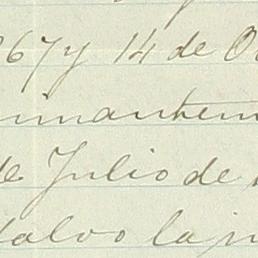 867 y 14 de O
imanten
de Julio de
salvo la in